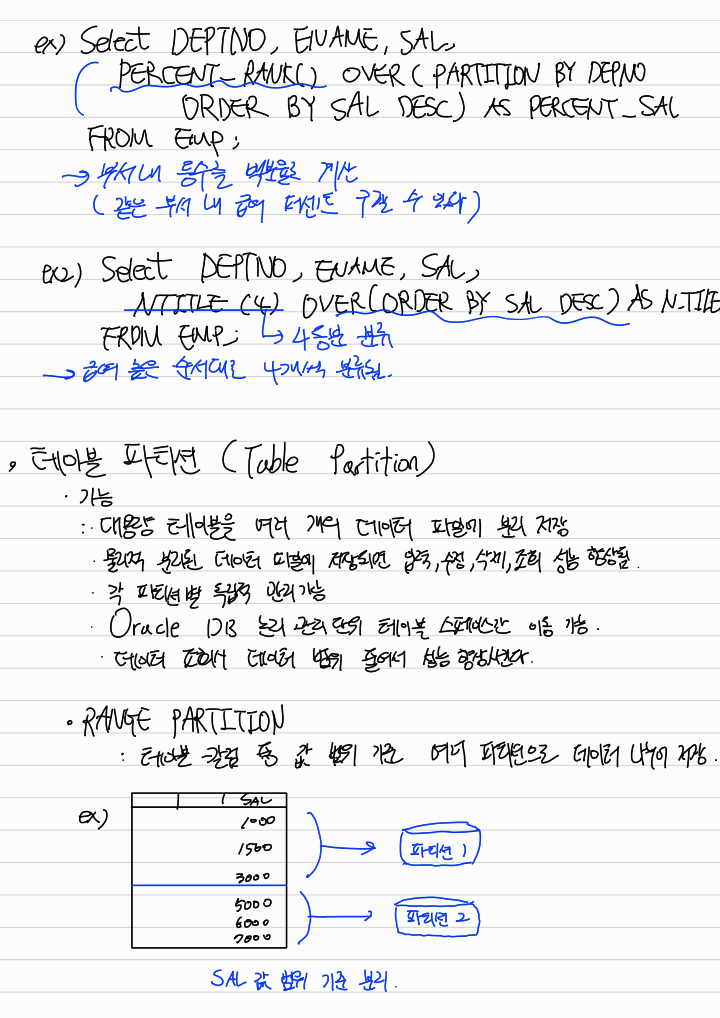 ex) Select DEPTNO, ENAME, SAL,
PERCENT_RANK() OVER (PARTITION BY DEPNO
ORDER BY SAL DESC) AS PERCENT_SAL
FROM Emp;
→ 부서내 등수를 백분율로 계산
(같은 부서 내 급여 퍼센트 구할 수 있다)
ex2) Select DEPTNO, ENAME, SAL,
NTITLE (4) OVER(ORDER BY SAL DESC) AS N_TILE
FROM EMP; ↳ 4등분 분류
→ 급여 높은 순서대로 4개씩 분류됨.
• 테이블 파티션 (Table Partition)
· 기능
: · 대용량 테이블을 여러 개의 데이터 파일에 분리 저장
· 물리적 분리된 데이터 파일에 저장되면 입력, 수정, 삭제, 조회 성능 향상됨.
· 각 파티션별 독립적 관리가능
· Oracle DB 논리 관리단위 테이블 스페이스간 이동 가능.
· 데이터 조회시 데이터 범위 줄여서 성능 향상시킨다.
• RANGE PARTITION
: 테이블 칼럼 중 값 범위 기준 여러 파티션으로 데이터 나누어 저장.
ex) SAL
1000
1500
3000
파티션 1
5000
6000
7000
파티션 2
SAL 값 범위 기준 분리.